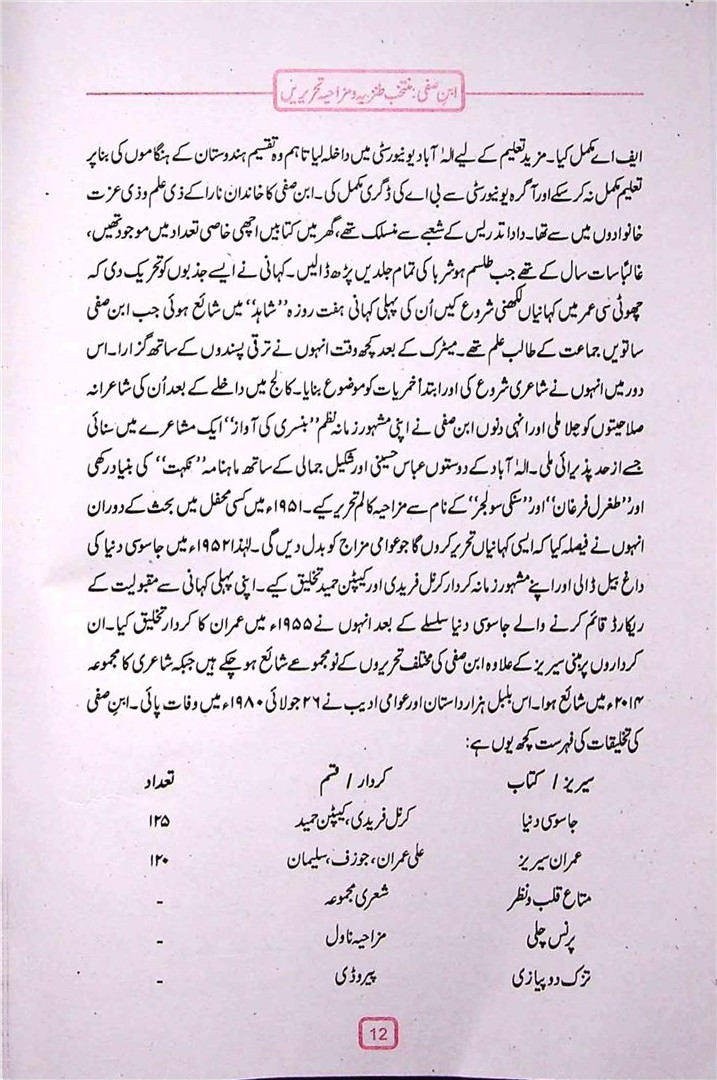 ابنِ صفی: منتخب طنزیہ و مزاحیہ تحریریں
ایف اے مکمل کیا۔ مزید تعلیم کے لیے الہٰ آباد یونیورسٹی میں داخلہ لیا تاہم وہ تقسیم ہندوستان کے ہنگاموں کی بنا پر
تعلیم مکمل نہ کر سکے اور آگرہ یونیورسٹی سے بی اے کی ڈگری مکمل کی۔ ابنِ صفی کا خاندان نارا کے ذی علم و ذی عزت
خانوادوں میں سے تھا۔ دادا تدریس کے شعبے سے منسلک تھے، گھر میں کتابیں اچھی خاصی تعداد میں موجود تھیں،
غالباً سات سال کے تھے جب طلسم ہوشربا کی تمام جلدیں پڑھ ڈالیں۔ کہانی نے ایسے جذبوں کو تحریک دی کہ
چھوٹی سی عمر میں کہانیاں لکھنی شروع کیں اُن کی پہلی کہانی ہفت روزہ ”شاہد“ میں شائع ہوئی جب ابن صفی
ساتویں جماعت کے طالب علم تھے۔ میٹرک کے بعد کچھ وقت انہوں نے ترقی پسندوں کے ساتھ گزارا۔ اس
دور میں انہوں نے شاعری شروع کی اور ابتداً خمریات کو موضوع بنایا۔ کالج میں داخلے کے بعد اُن کی شاعرانہ
صلاحیتوں کو جلا ملی اور انہی دنوں ابن صفی نے اپنی مشہور زمانہ نظم ”بنسری کی آواز“ ایک مشاعرے میں سنائی
جسے ازحد پذیرائی ملی۔ الہٰ آباد کے دوستوں عباس حسینی اور شکیل جمالی کے ساتھ ماہنامہ ”نکہت“ کی بنیاد رکھی
اور ”طغرل فرغان“ اور ”سنکی سولجر“ کے نام سے مزاحیہ کالم تحریر کیے۔ ۱۹۵۱ء میں کسی محفل میں بحث کے دوران
انہوں نے فیصلہ کیا کہ ایسی کہانیاں تحریر کروں گا جو عوامی مزاج کو بدل دیں گی۔ لہٰذا ۱۹۵۲ء میں جاسوسی دنیا کی
داغ بیل ڈالی اور اپنے مشہور زمانہ کردار کرنل فریدی اور کیپٹن حمید تخلیق کیے۔ اپنی پہلی کہانی سے مقبولیت کے
ریکارڈ قائم کرنے والے جاسوسی دنیا سلسلے کے بعد انہوں نے ۱۹۵۵ء میں عمران کا کردار تخلیق کیا۔ ان
کرداروں پر مبنی سیریز کے علاوہ ابن صفی کی مختلف تحریروں کے نو مجموعے شائع ہو چکے ہیں جبکہ شاعری کا مجموعہ
۲۰۱۴ء میں شائع ہوا۔ اس بلبل ہزار داستان اور عوامی ادیب نے ۲۶ جولائی ۱۹۸۰ء میں وفات پائی۔ ابنِ صفی
کی تخلیقات کی فہرست کچھ یوں ہے:
سیریز / کتاب کردار / قسم تعداد
جاسوسی دنیا کرنل فریدی، کیپٹن حمید ۱۲۵
عمران سیریز علی عمران، جوزف، سلیمان ۱۲۰
متاع قلب و نظر شعری مجموعہ -
پرنس چلی مزاحیہ ناول -
تزک دوپیازی پیروڈی -
12